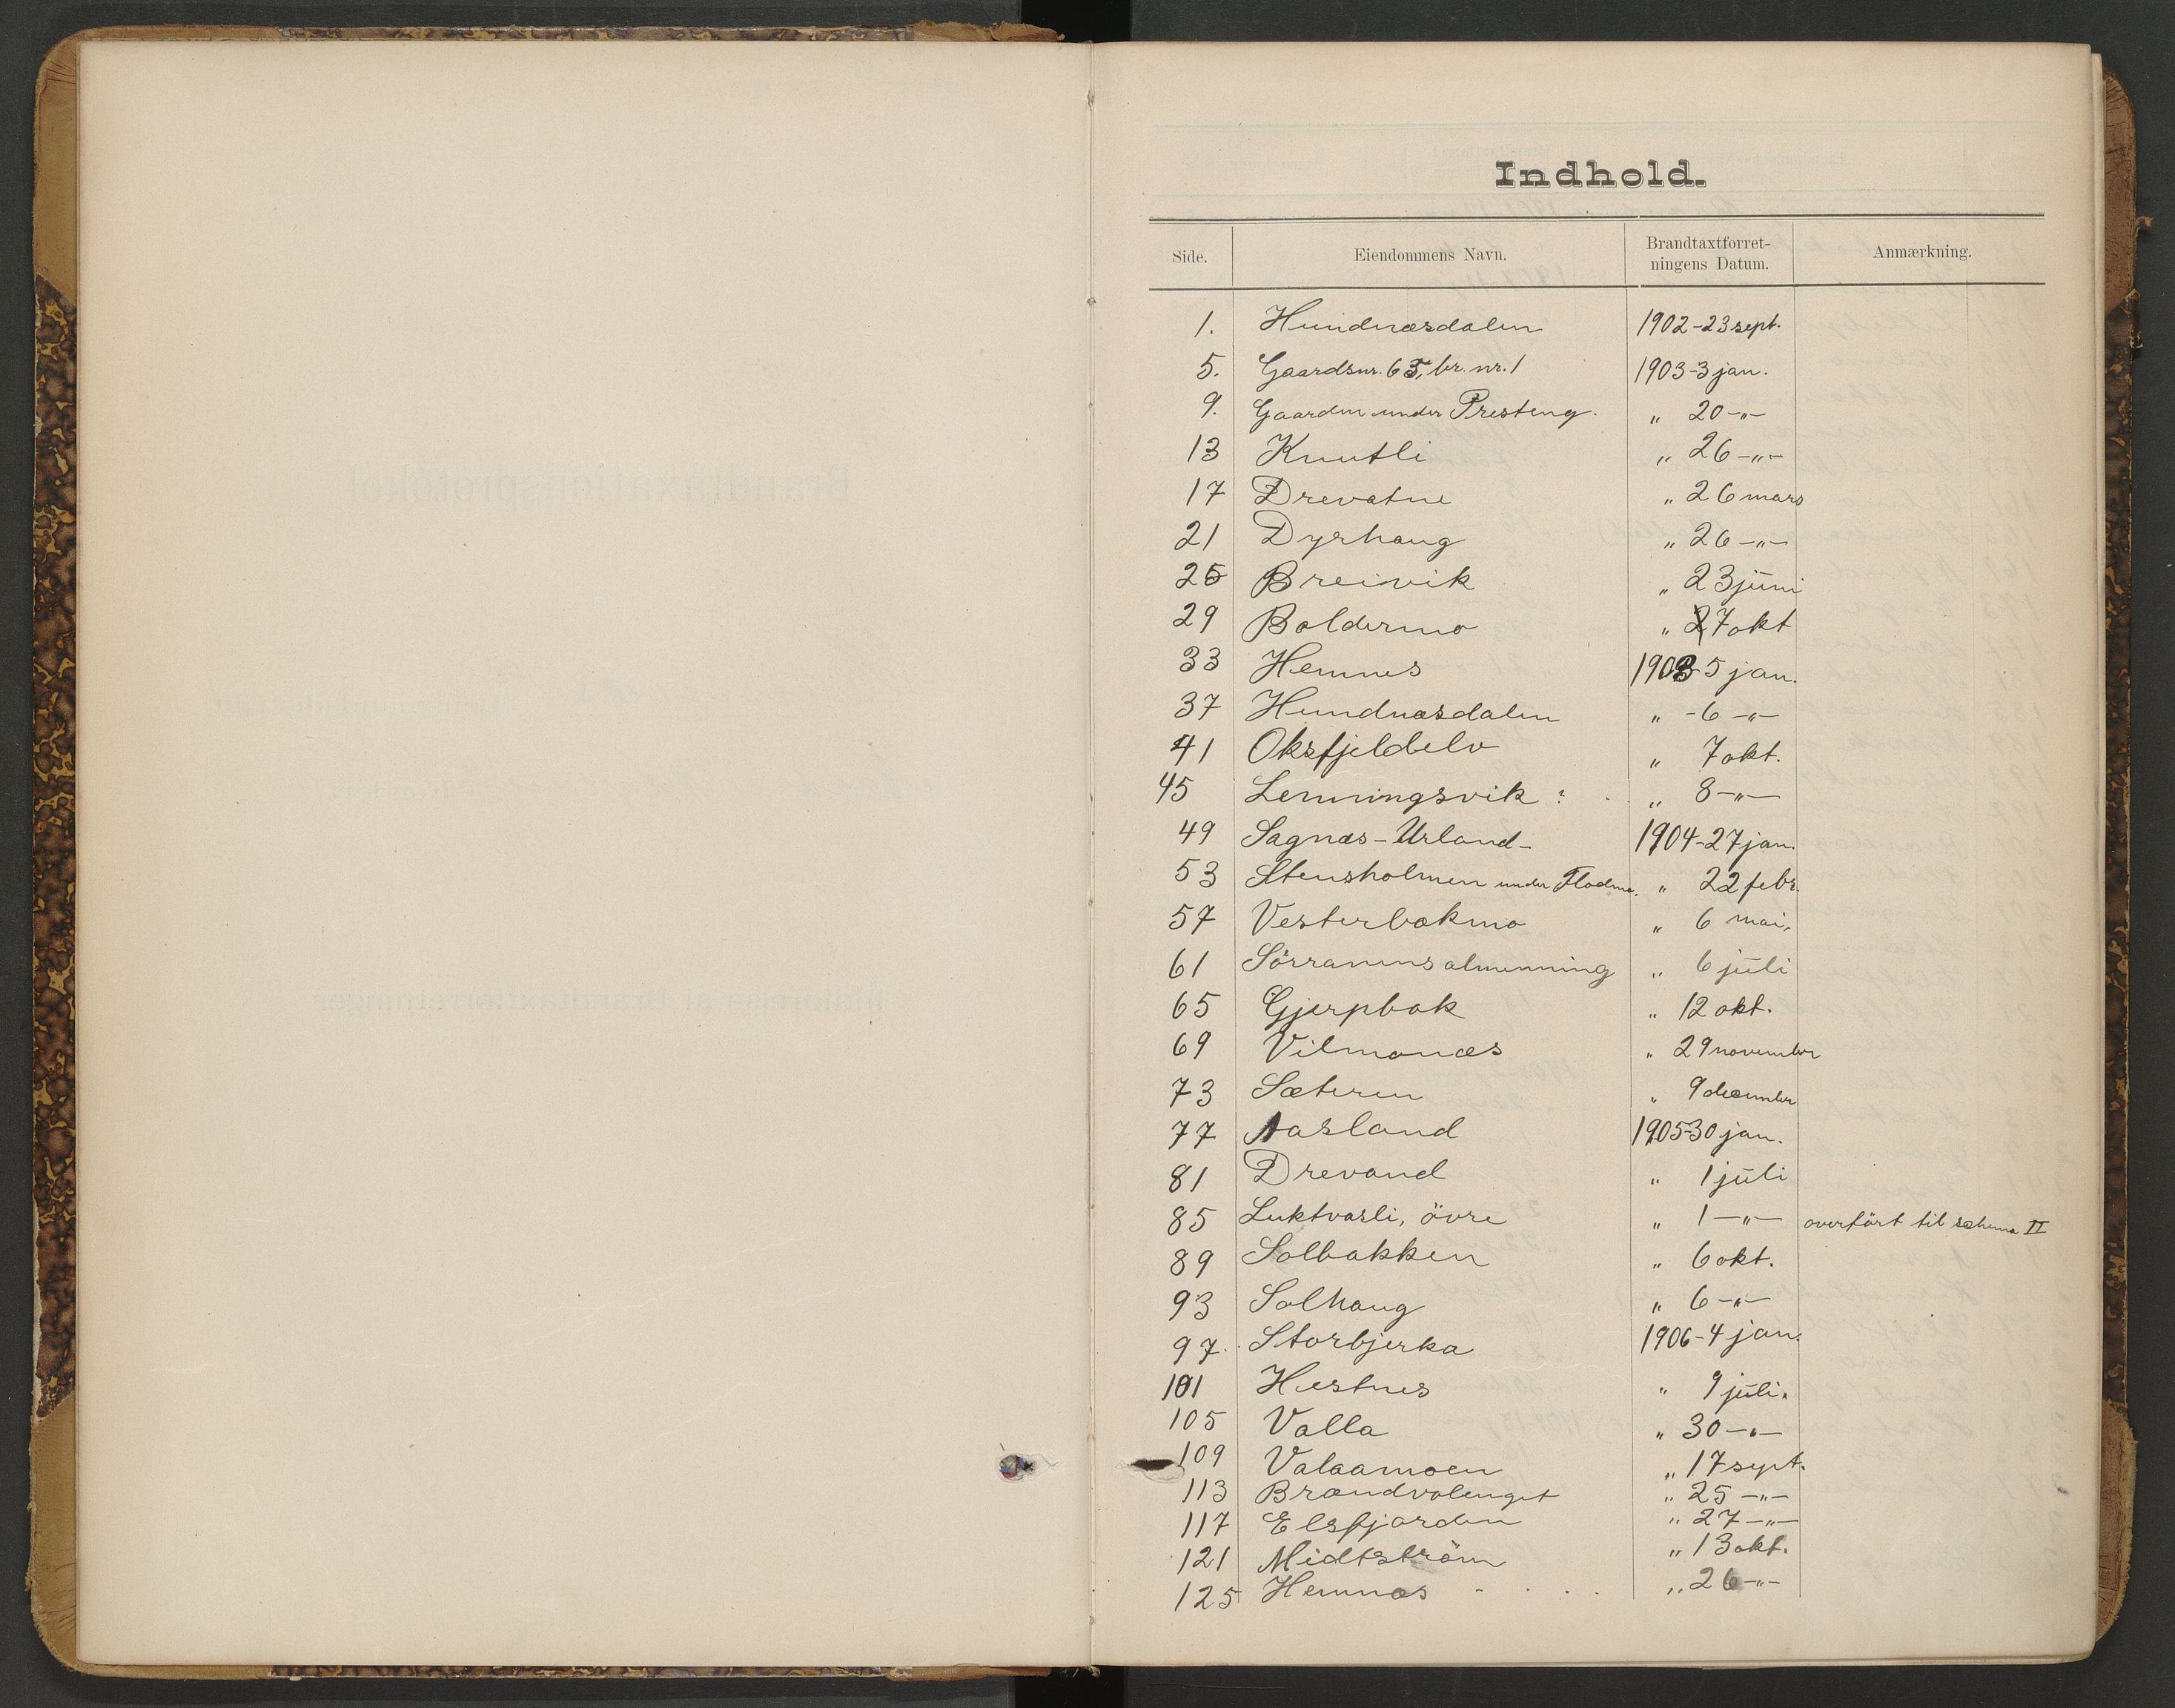 Indhold.
Side. Eiendommens Navn. Brandtaxtforret-ningens Datum. Anmærkning.
1. Hundnæsdalen 1902-23 sept.
5. Gaardsnr. 65, br. nr. 1 1903-3 jan.
9. Gaarden under Presteng. " 20-"-
13 Knutli " 26-"-
17 Drevatne " 26 mars
21 Dyrhaug " 26-"-
25 Breivik " 23 juni
29 Boldermo " 7 okt
33 Hemnes 1903-5 jan.
37 Hundnæsdalen " -6-"-
41 Oksfjeldelv " 7 okt.
45 Lenningsvik ? " 8-"-
49 Sagnæs-Urland- 1904-27 jan.
53 Stensholmen under Flodmo. " 22 febr.
57 Vesterbækmo " 6 mai,
61 Sörranens almenning " 6 juli
65 Gjerpbak " 12 okt.
69 Vilmonæs " 29 november
73 Sæteren " 9 december
77 Aasland 1905-30 jan.
81 Drevand " 1 juli
85 Luktvasli, övre " 1-"- overfört til schema II
89 Solbakken " 6 okt.
93 Solhaug " 6-"-
97. Storbjerka 1906-4 jan.
101 Hestnes " 9 juli.
105 Valla " 30-"-
109 Valaamoen " 17 sept.
113 Brændvolenget " 25-"-
117 Elsfjorden " 27-"-
121 Midtström " 13 okt.
125 Hemnæs " 26-"-